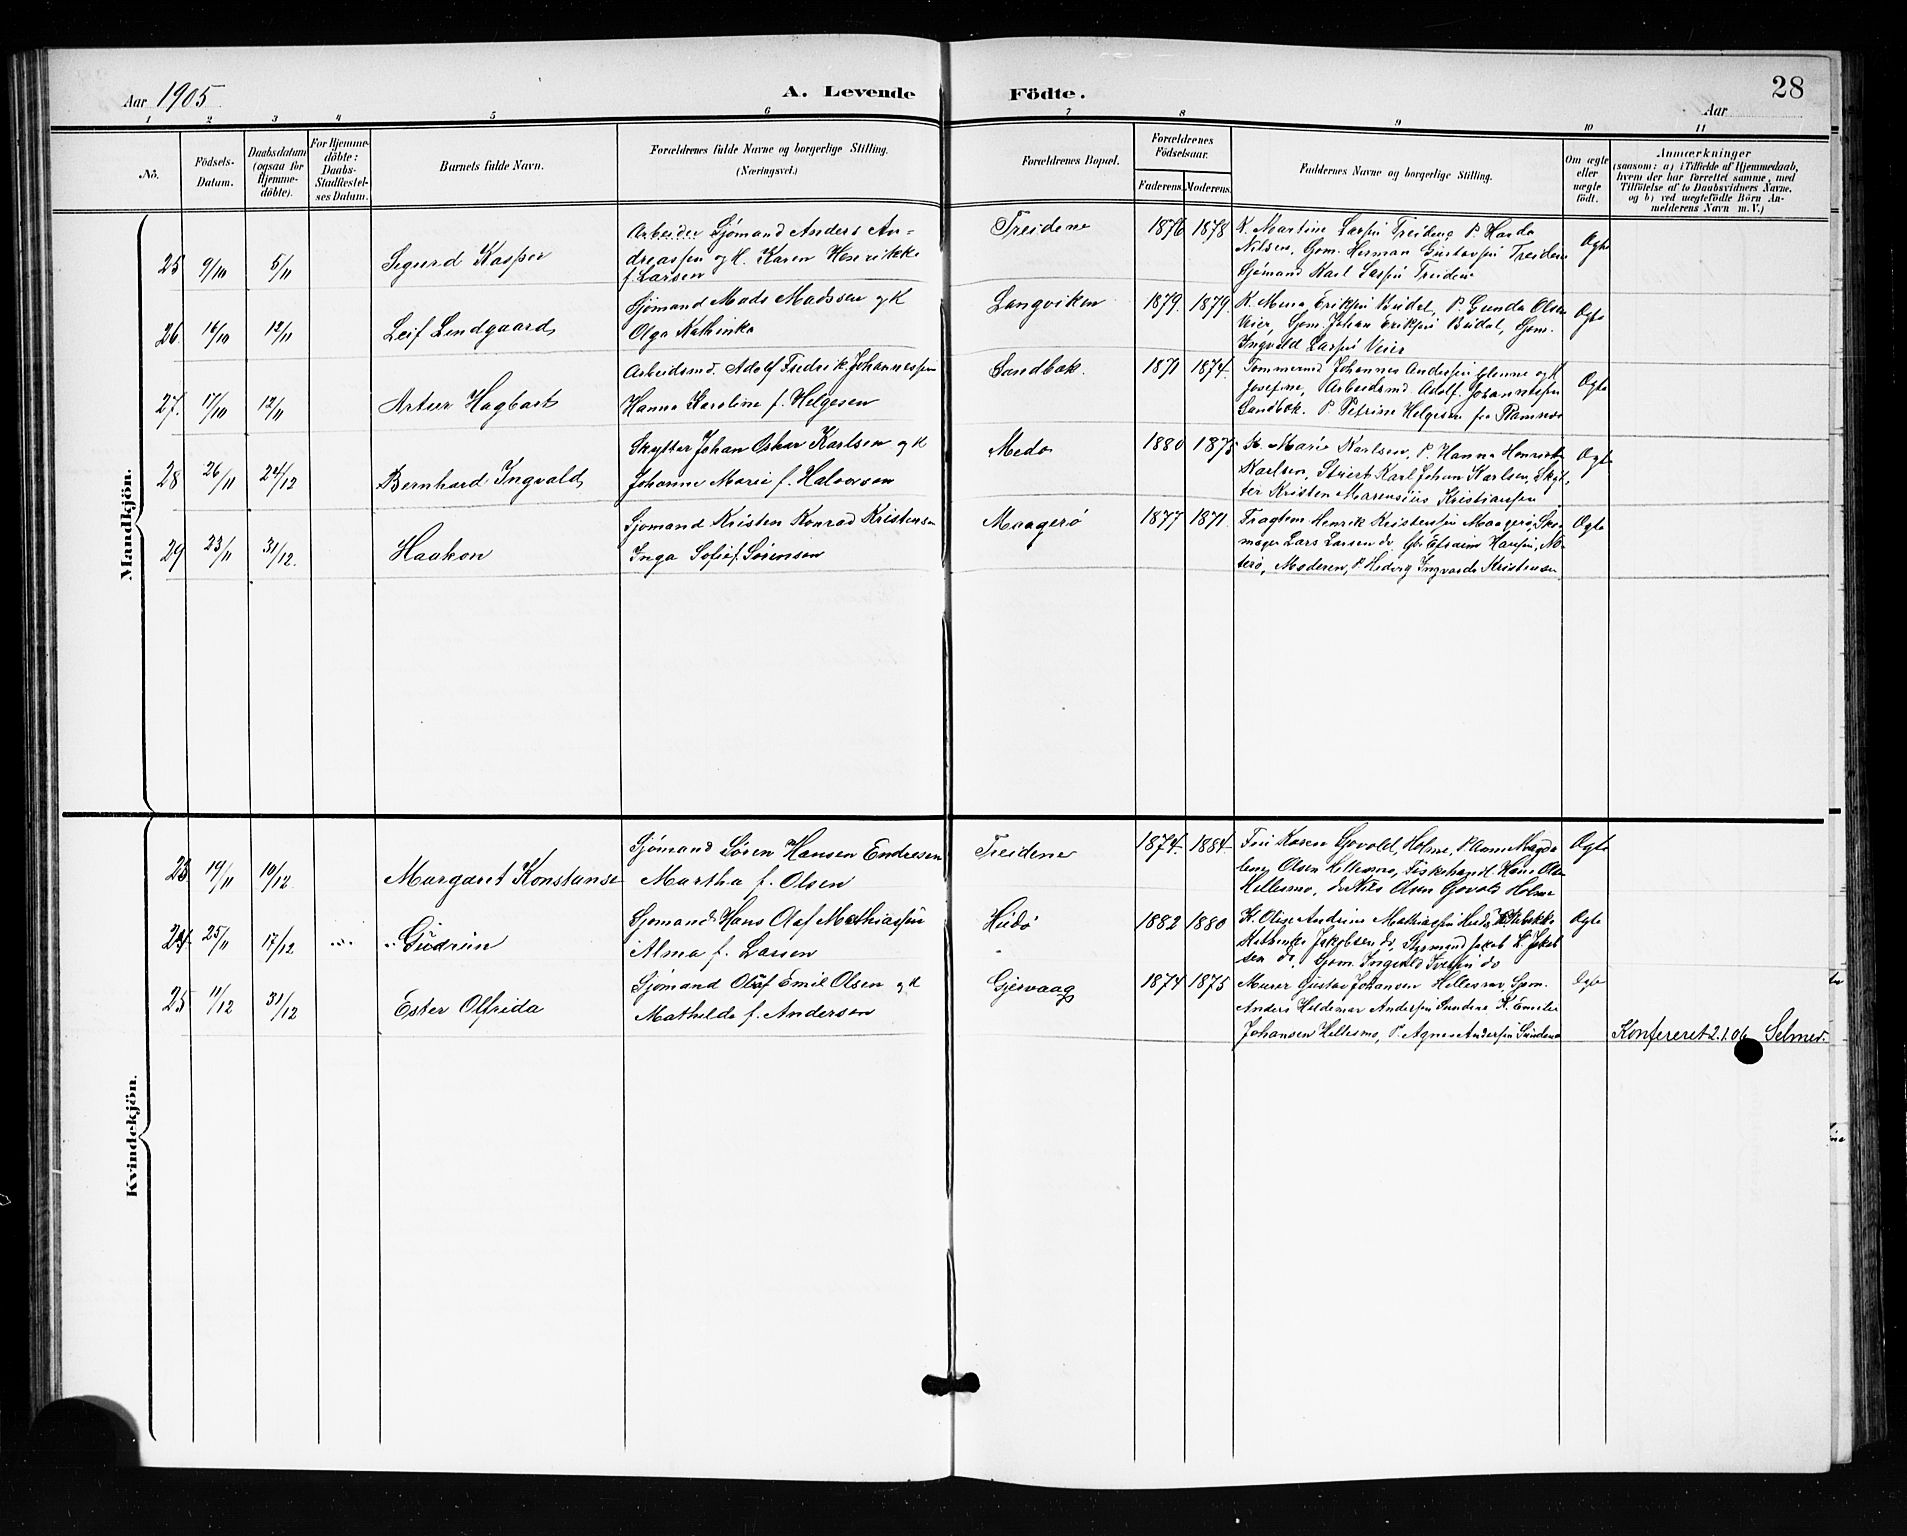 28
Aar 1905
A. Levende Födte.
Aar
1 2 3 4 5 6 7 8 9 10 11
No.
Födsels-Datum.
Daabsdatum (ogsaa for Hjemmedöbte).
For Hjemmedöbte: Daabs-Stadfæstelses Datum.
Barnets fulde Navn.
Forældrenes fulde Navne og borgerlige Stilling.
(Næringsvei.)
Forældrenes Bopæl.
Forældrenes Födselsaar.
Faderens. Moderens.
Faddernes Navne og borgerlige Stilling.
Om ægte eller uægte født.
Anmærkninger
(saasom: a) i Tilfælde af Hjemmedaab, hvem der har forrettet samme, med Tilföielse af to Daabsvidners Navne, og b) ved uægtefödte Börn Anmelderens Navn m. V.)
Mandkjön.
25 9/10 5/11 Sigurd Kasper
Arbeider Sjömand Anders An-
dreassen og H. Karen Henrikke
f. Larsen
Treidene 1876 1878
K. Martine Larsen Treidene P. Harda
Nilsen, Gom. Herman Gustavsen Treidene
Sjömand Karl Larsen Treidene
Ægte
26 16/10 12/11 Leif Lindgaard
Sjømand Mads Madssen og H
Olga Kathinka
Langviken 1879. 1879.
K. Mina Eriksen Budal, P. Gunda Olsen
Veier, Sjom. Johan Eriksen Budal, Gom.
Ingvald Larsen Veier
Ægte
27. 17/10 12/11 Artur Hagbart
Arbeidsmd. Adolf Fredrik Johannessen
Hanna Karoline f. Helgesen
Sandbæk. 1871 1874.
Tømmermd Johannes Andersen Glenne og H
Josefine, Arbeidsmd. Adolf. Johannesen
Sandbæk. P. Petrine Helgesen fra Ramnes
Ægte
28 26/11 24/12 Bernhard Ingvald
Skytter Johan Oskar Karlsen og H
Johanne Marie f. Halvorsen
Medø 1880 1875
K. Marie Karlsen, P. Hanna Henriette
Karlsen, Stuert Karl Johan Karlsen, Skyt-
ter Kristen Marensius Kristiansen
Ægte
29 23/11 31/12. Haakon
Sjømand Kristen Konrad Kristensen
Inga Sofie f. Sørensen
Maagerø 1877 1871.
Fragtem Henrik Kristensen Maagerø, Sko-
mager Lars Larsen do Gbr Efraim Hansen, Nø-
terø, Moderen, P. Hedvig Ingvarda Kristensen
Ægte
Kvindekjön.
23 19/11 10/12 Margaret Konstanse
Sjømand Søren Hansen Endresen
Martha f. Olsen
Treidene 1874. 1884
Fru Karen Govold, Holme, P. Anna Magda
lene Olsen Hellesmo, Fiskehandl. Hans Olsen
Hellesmo, do Nils Olsen Govold Holme
Ægte
24 25/11 17/12 Gudrun
Sjømand Hans Olaf Mathiassen
Alma f. Larsen
Hudø 1882 1880
K. Olise Andrine Mathiassen Hudø
Kathinka Jakobsen do, Styrmand Jakob L. Jakob
sen do, Sjom. Ingvald Iversen do
Ægte
25 11/12 31/12 Ester Olfrida
Sjømand Olaf Emil Olsen og H
Mathilde f. Andersen
Gjervaag 1874 1875
Murer Gustav Johansen Hellesmo, Sjom.
Anders Hildemar Andersen Sundene K. Emilie
Johansen Hellesmo, P. Agnes Andersen Sundene
Ægte
Konfereret 2.1.06 Selmer.